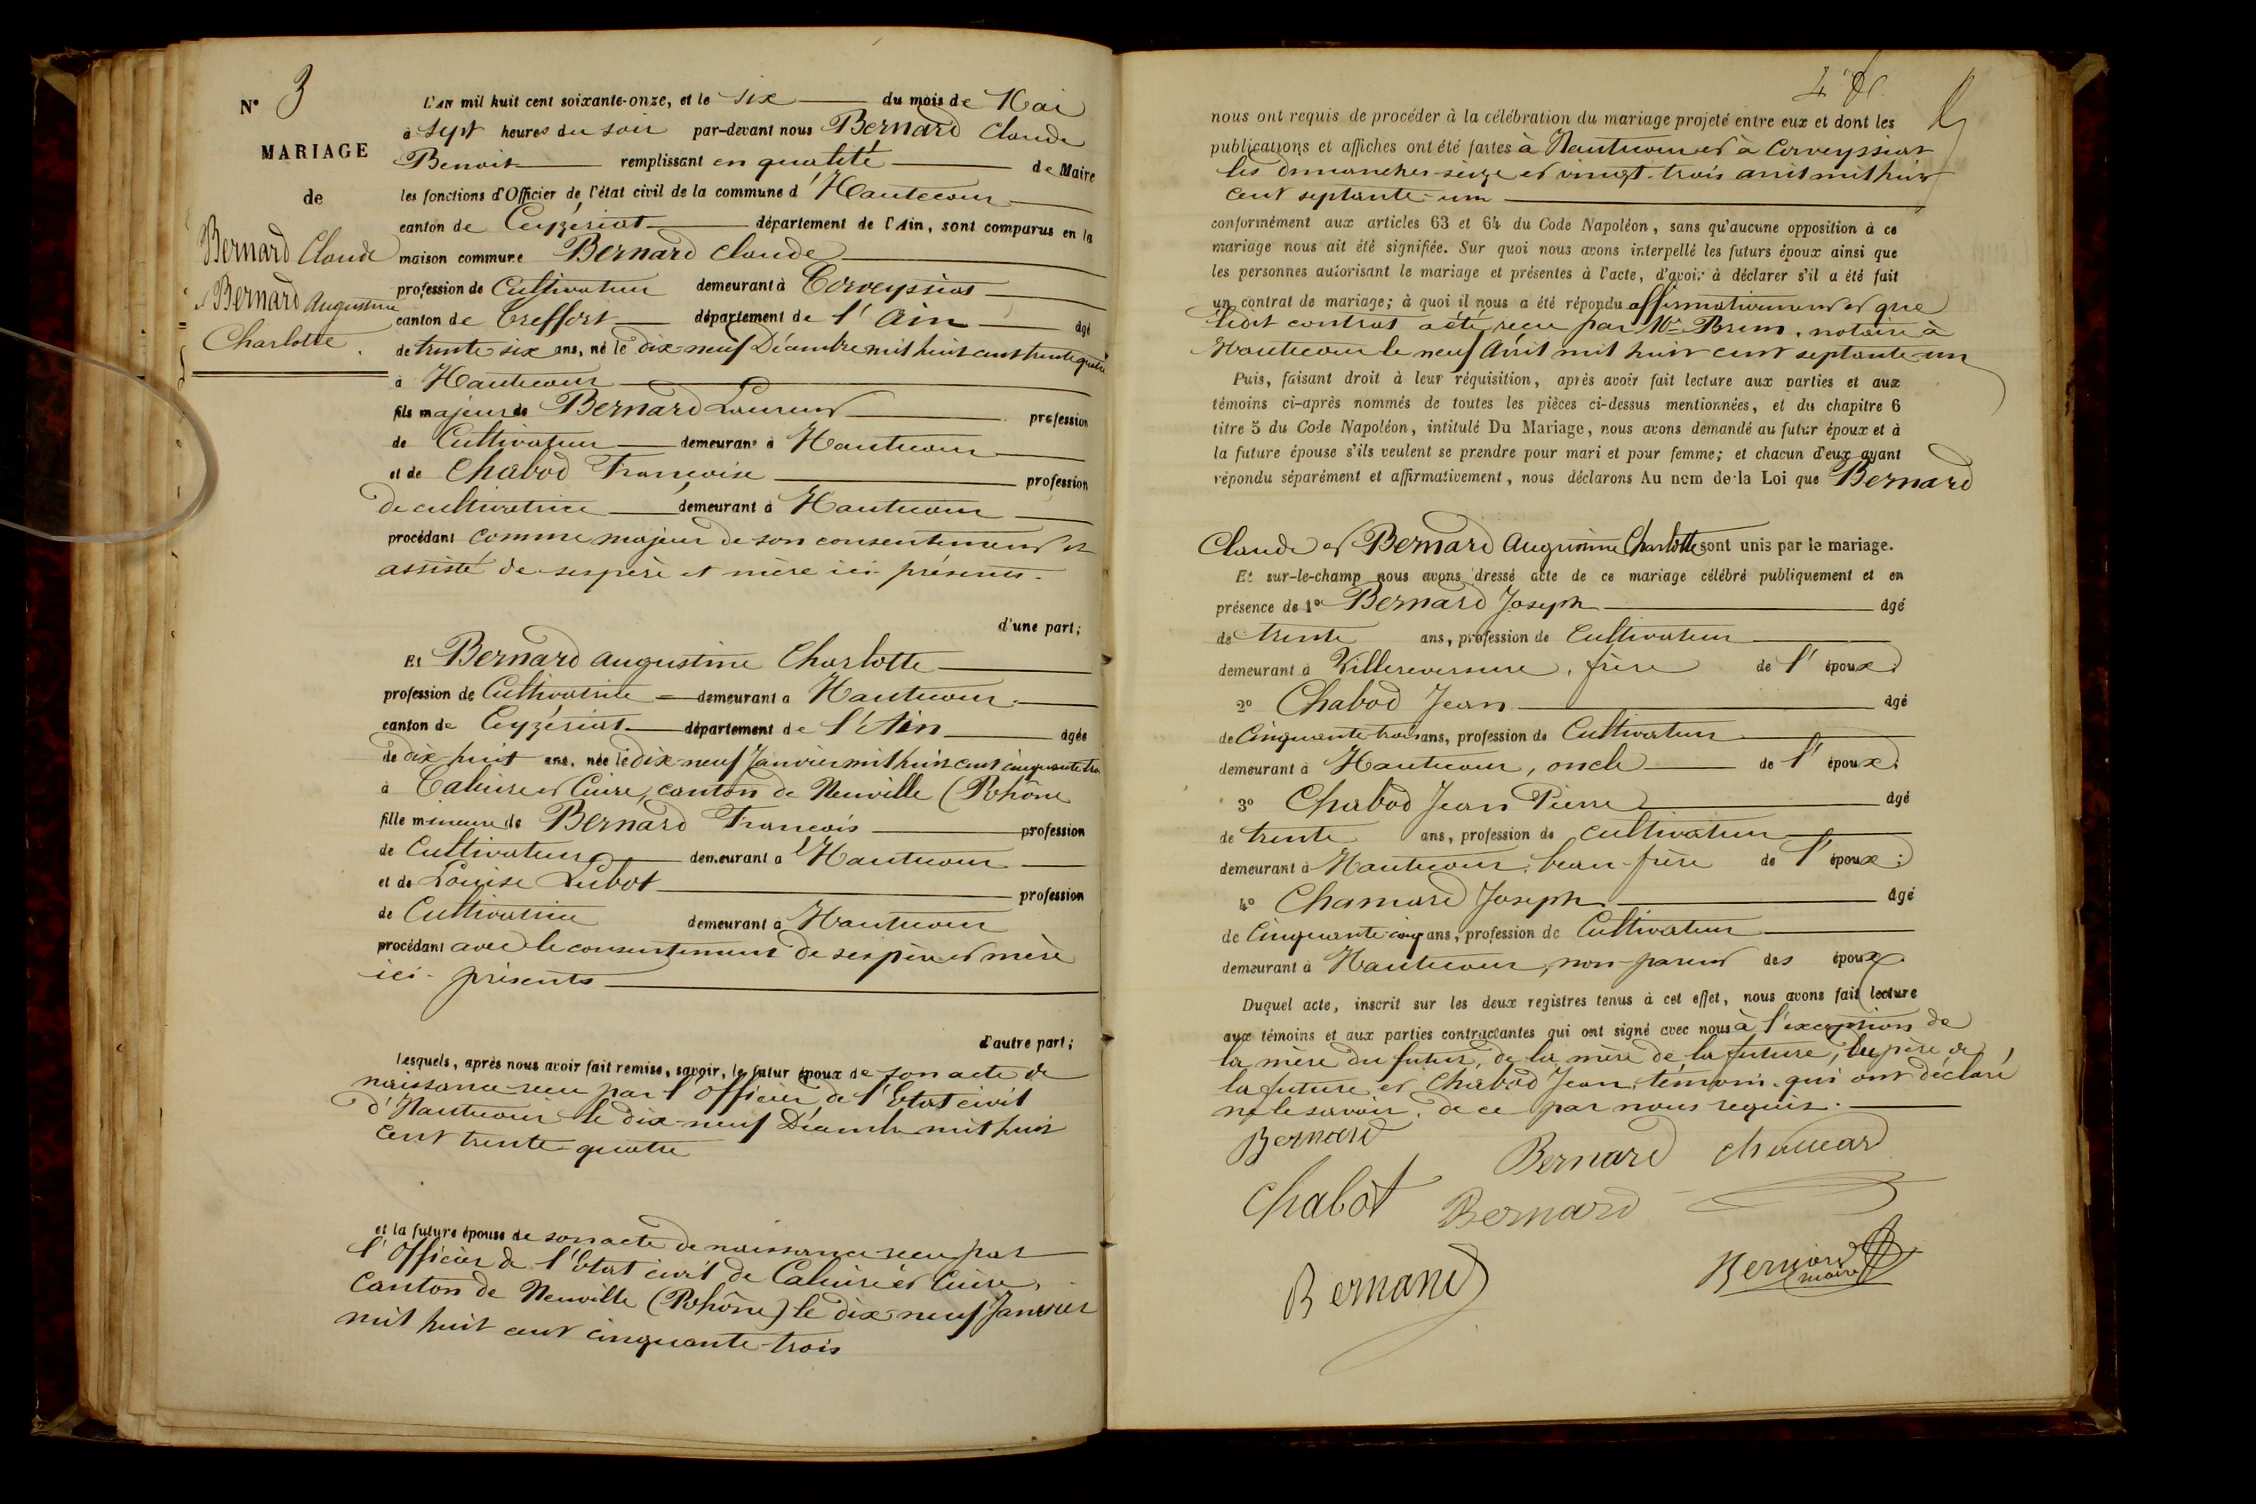 N° 3
MARIAGE
de
Bernard Claude
& Bernard Augustine
Charlotte
L'AN mil huit cent soixante-onze, et le six du mois de Mai
à sept heures du soir par-devant nous Bernard Claude
Benoit remplissant en qualité de Maire
les fonctions d'Officier de l'état civil de la commune d'Hautecour
canton de Ceyzériat département de l'Ain, sont comparus en la
maison commune Bernard Claude
profession de Cultivateur demeurant à Corveyssiat
canton de Treffort département de l'Ain âgé
de trente six ans, né le dix neuf Décembre mil huit cent trente quatre
à Hautecour
fils majeur de Bernard Laurent profession
de Cultivateur demeurant à Hautecour
et de Chabod Françoise profession
de cultivatrice demeurant à Hautecour
procédant comme majeur de son consentement et
assisté de ses père et mère ici présents.
d'une part;
Et Bernard Augustine Charlotte
profession de Cultivatrice demeurant à Hautecour
canton de Ceyzériat département de l'Ain âgée
de dix huit ans, née le dix neuf Janvier mil huit cent cinquante trois
à Caluire et Cuire, canton de Neuville (Rhône
fille mineure de Bernard François profession
de Cultivateur demeurant à Hautecour
et de Louise Lubot profession
de Cultivatrice demeurant à Hautecour
procédant avec le consentement de ses père et mère
ici présents
d'autre part;
Lesquels, après nous avoir fait remise, savoir, le futur époux de son acte de
naissance reçu par l'Officier de l'Etat civil
d'Hautecour le dix-neuf Décembre mil huit
cent trente quatre
et la future épouse de son acte de naissance reçu par
l'Officier de l'Etat civil de Caluire et Cuire,
canton de Neuville (Rhône) le dix neuf Janvier
mil huit cent cinquante-trois
nous ont requis de procéder à la célébration du mariage projeté entre eux et dont les
publications et affiches ont été faites à Hautecour et à Corveyssiat
les dimanches seize et vingt-trois avril mil huit
cent septante-un
conformément aux articles 63 et 64 du Code Napoléon, sans qu'aucune opposition à ce
mariage nous ait été signifiée. Sur quoi nous avons interpellé les futurs époux ainsi que
les personnes autorisant le mariage et présentes à l'acte, d'avoir à déclarer s'il a été fait
un contrat de mariage; à quoi il nous a été répondu affirmativement et que
ledit contrat a été reçu par Me Brun, notaire à
Hautecour le neuf Avril mil huit cent septante-un
Puis, faisant droit à leur réquisition, après avoir fait lecture aux parties et aux
témoins ci-après nommés de toutes les pièces ci-dessus mentionnées, et du chapitre 6
titre 5 du Code Napoléon, intitulé Du Mariage, nous avons demandé au futur époux et à
la future épouse s'ils veulent se prendre pour mari et pour femme; et chacun d'eux ayant
répondu séparément et affirmativement, nous déclarons Au nom de la Loi que Bernard
Claude et Bernard Augustine Charlotte sont unis par le mariage.
Et sur-le-champ nous avons dressé acte de ce mariage célébré publiquement et en
présence de 1° Bernard Joseph âgé
de trente ans, profession de Cultivateur
demeurant à Villereversure, frère de l'époux;
2° Chabod Jean âgé
de Cinquante trois ans, profession de Cultivateur
demeurant à Hautecour, oncle de l'époux;
3° Chabod Jean Pierre âgé
de trente ans, profession de cultivateur
demeurant à Hautecour, beau-frère de l'époux;
4° Chamard Joseph âgé
de Cinquante cinq ans, profession de Cultivateur
demeurant à Hautecour, non-parent des époux.
Duquel acte, inscrit sur les deux registres tenus à cet effet, nous avons fait lecture
aux témoins et aux parties contractantes qui ont signé avec nous à l'exception de
la mère du futur, de la mère de la future, du père de
la future et Chabod Jean, témoin qui ont déclaré
ne le savoir, de ce par nous requis.
Bernard
Bernard chamard
Chabot Bernard
Bernard
Bernard
maire